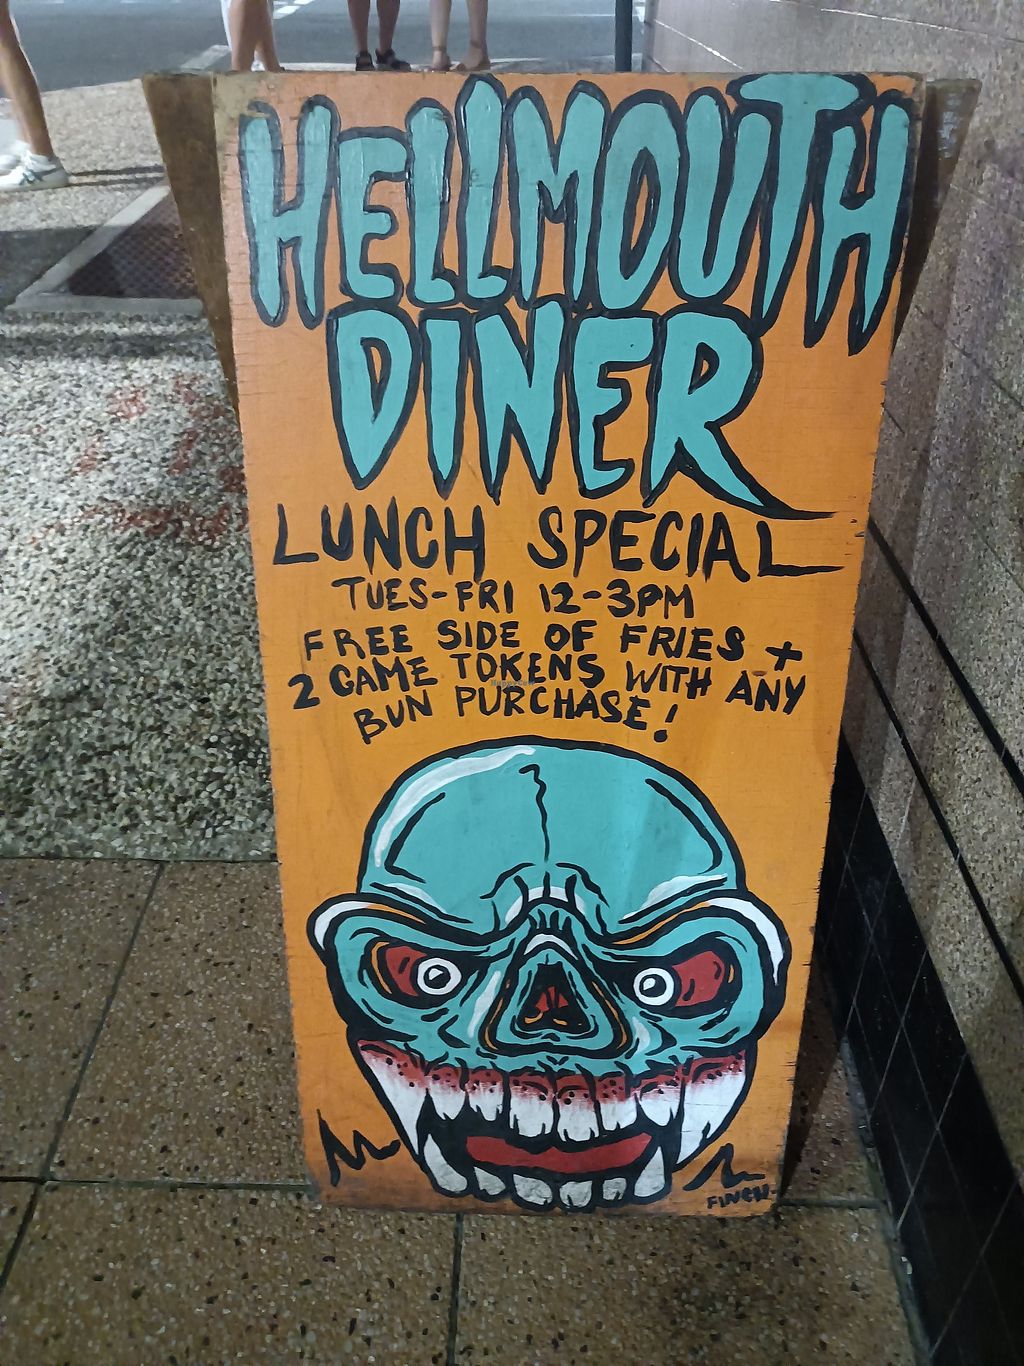 HELLMOUTH
DINER
LUNCH SPECIAL
TUES-FRI 12-3PM
FREE SIDE OF FRIES +
2 GAME TOKENS WITH ANY
BUN PURCHASE!
FINCH-